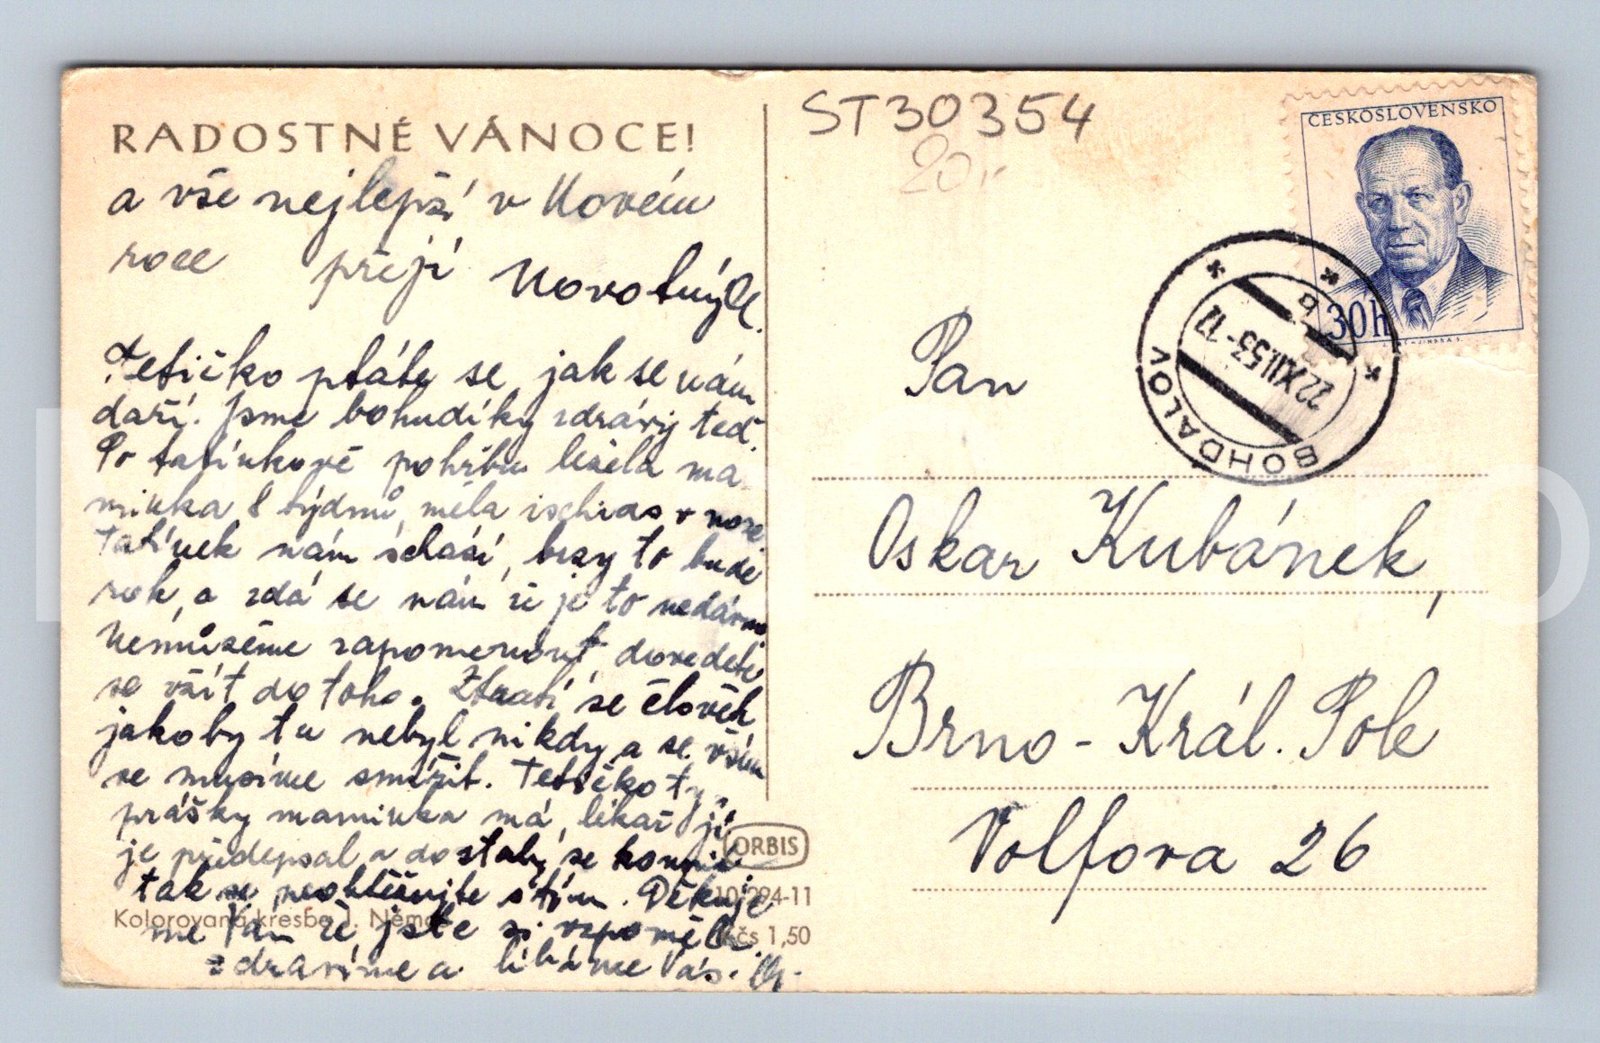 RADOSTNÉ VÁNOCE!
a vše nejlepší v Novém
roce přejí Novotných.
Tetičko ptáte se, jak se nám
daří. Jsme bohudíky zdrávy teď.
Po tatínkově pohřbu ležela ma
minka 8 týdnů, měla ischias v noze
Tatínek nám schází, brzy to bude
rok, a zdá se nám že je to nedávno
Nemůžeme zapomenout, dovedete
se vžít do toho. Ztratí se člověk
jakoby tu nebyl nikdy a se vším
se musíme smířit. Tetičko ty
prášky maminka má, lékař jí
je předepsal a dostaly se koupit
tak se neobtěžujte s tím. Děkuje
me Vám že jste si vzpoměli
zdravíme a líbáme Vás.
Kolorovaná kresba J. Něme
ORBIS
10 294-11
Kčs 1,50
ST30354
20,-
ČESKOSLOVENSKO
30h
BOHDALOV
22.XII.53-12
b
Pan
Oskar Kubánek,
Brno - Král. Pole
Volfova 26